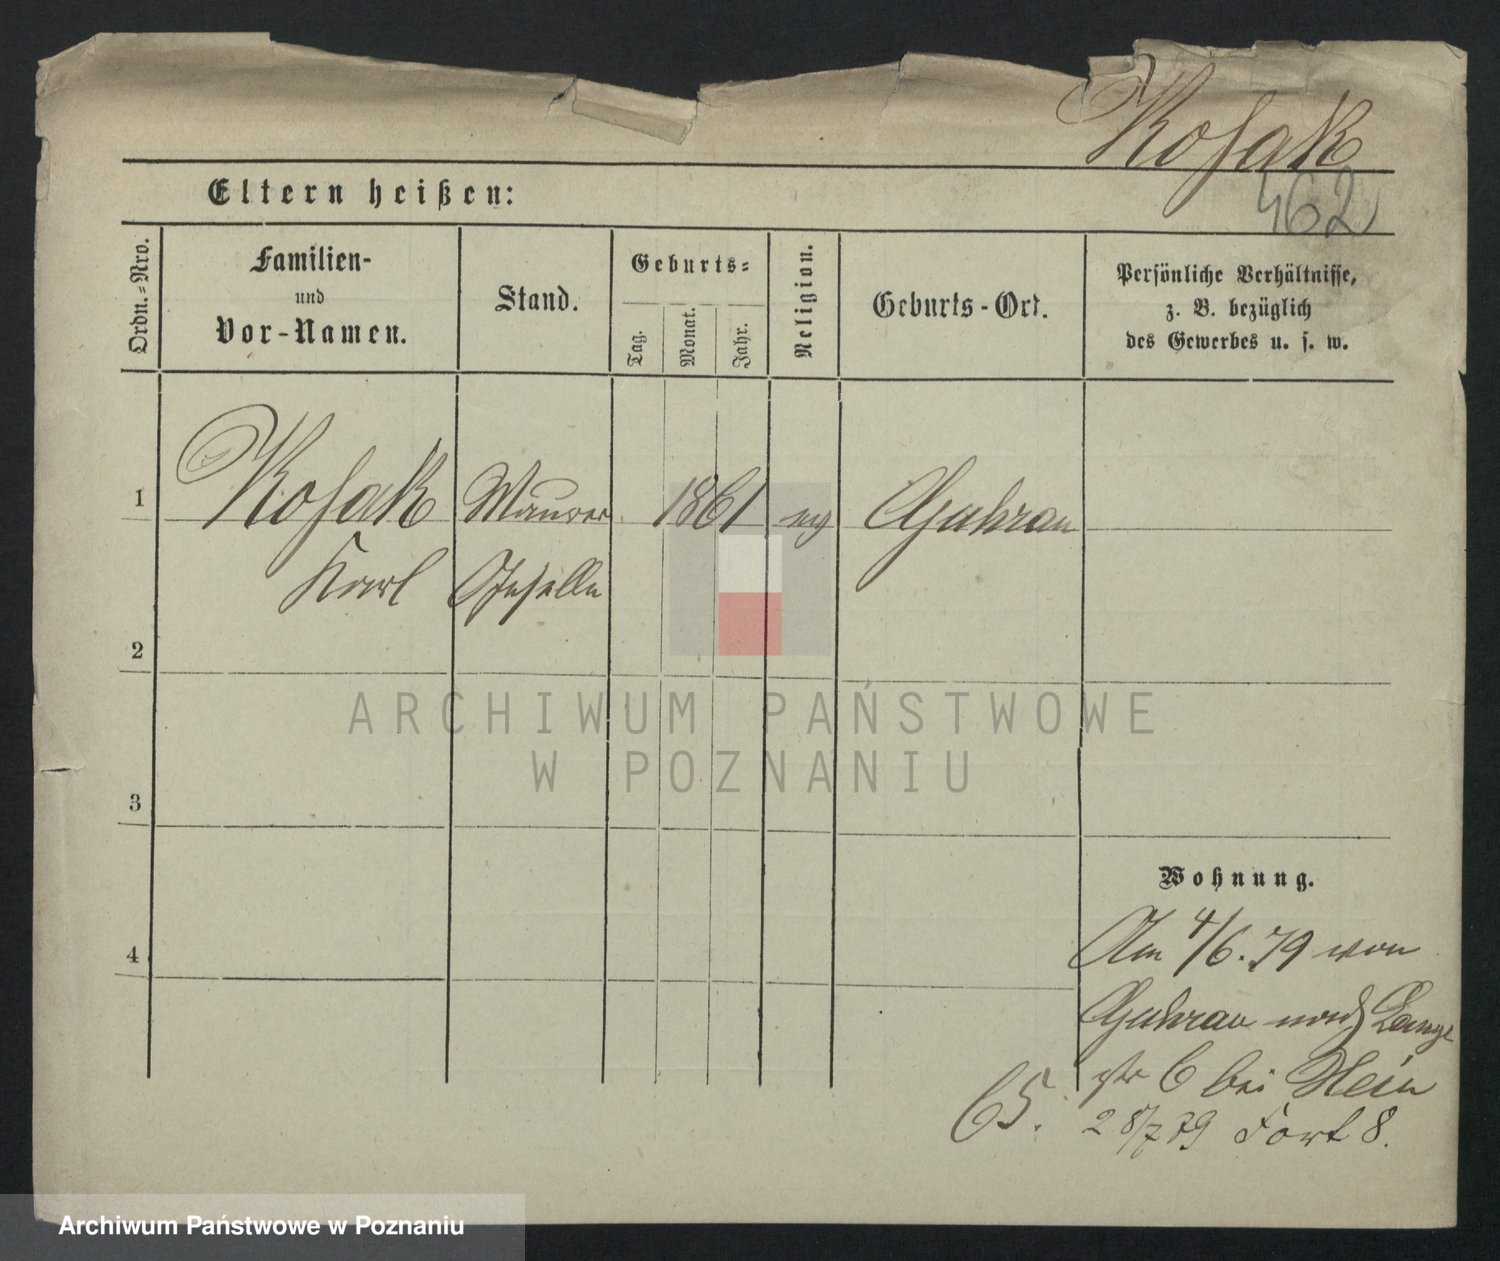 Kosak
462
Eltern heißen:
Ordn.-Nro.
Familien-
und
Vor-Namen.
Stand.
Geburts-
Tag.
Monat.
Jahr.
Religion.
Geburts-Ort.
Persönliche Verhältnisse,
z. B. bezüglich
des Gewerbes u. s. w.
1
Kosak
Karl
Maurer
Geselle
1861
ev
Guhrau
2
ARCHIWUM PAŃSTWOWE
W POZNANIU
3
Wohnung.
4
Am 4/6.79 von
Guhrau nach Lange
str 6 bei Klein
65.
28/7 79 Fort 8.
Archiwum Państwowe w Poznaniu